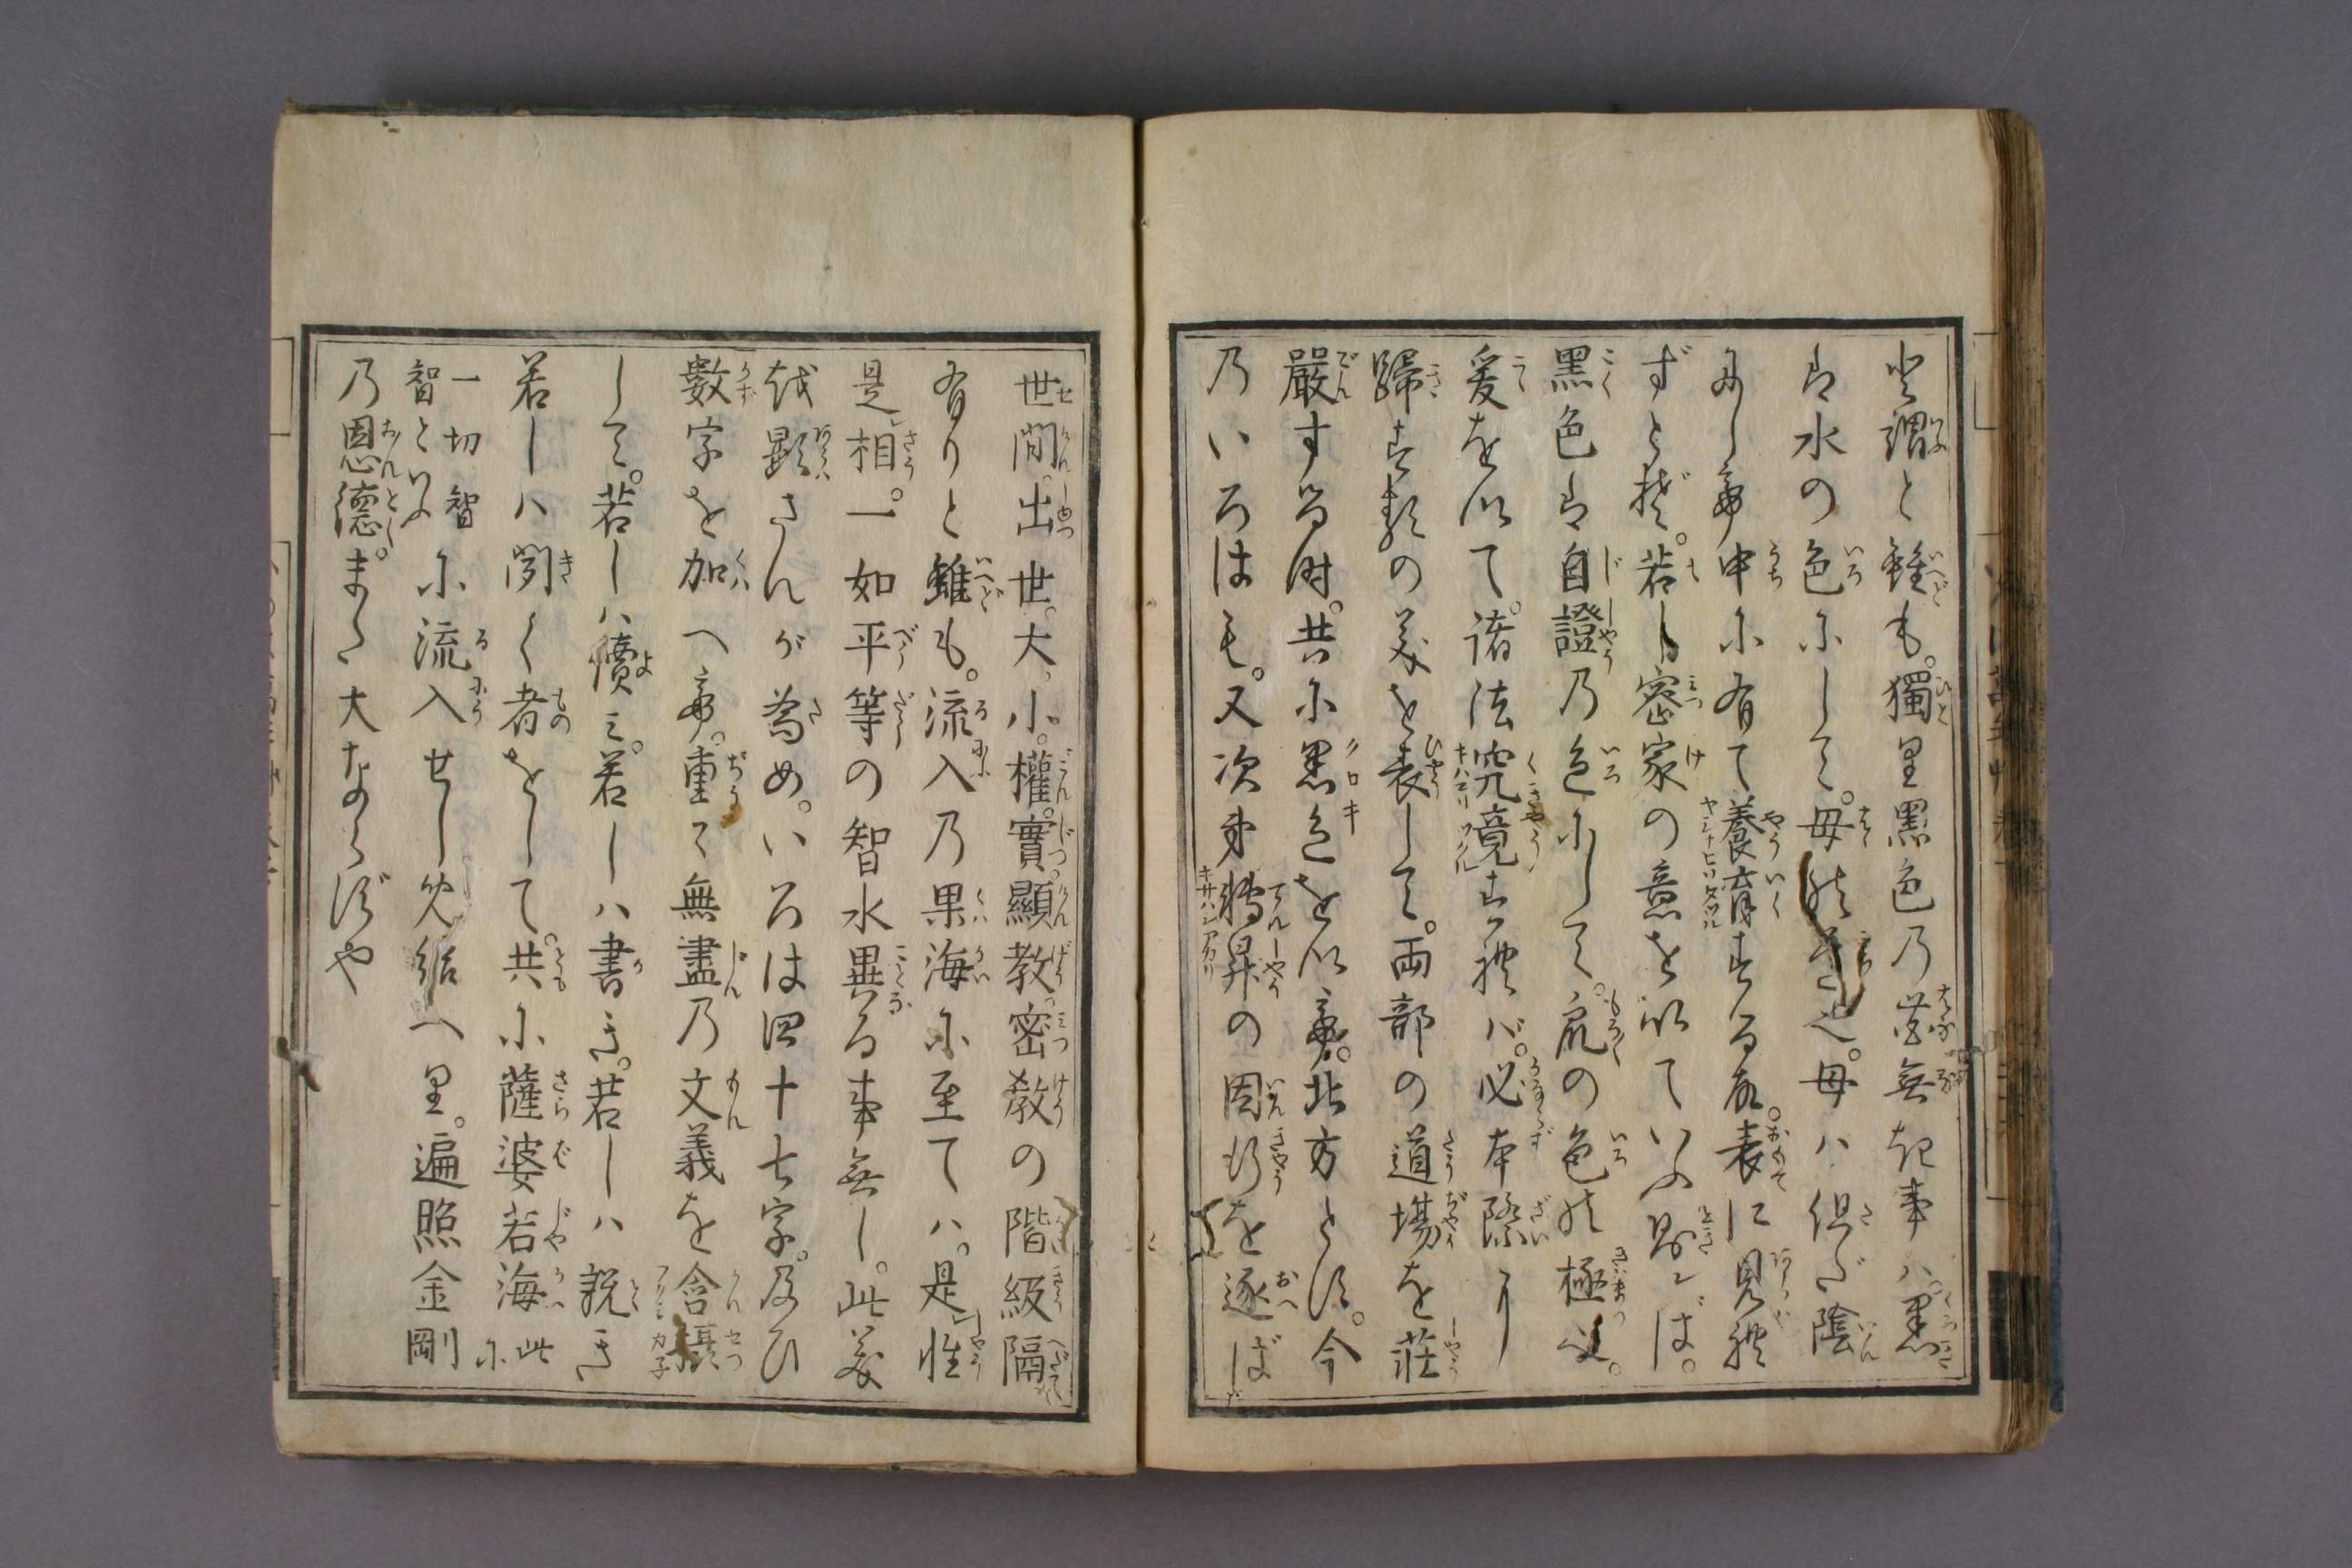 と謂と雖も。獨里黒色乃花無き事ハ。黒
は水の色にして。母能色也。母ハ但だ陰
にし帝中に有て養育する故。表に見礼
ずと捉。若し密家の意を以ていふ則ば。
黒色は自證乃色にして。衆の色能極也。
爰を以て。諸法究竟す礼バ。必本際に
歸する義を表して。両部の道場を莊
嚴する時。共に黒色を以帝。北方とす。今
乃いろはも。又次第轉昇の因行を逐ば
世間。出世。大。小。權。實。顯教。密教の階級隔
有りと雖も。流入乃果海に至てハ。是性
是相。一如平等の智水異る事無し。此義
越顯さんが為め。いろは四十七字。及ひ
數字を加へ帝。重て無盡乃文義を含攝
して。若しハ讀み。若しハ書き。若しハ説き
若しハ聞く者をして。共に薩婆若海此に
一切智智といふに流入せしめ給へ里。遍照金剛
乃恩徳。また大ならずや